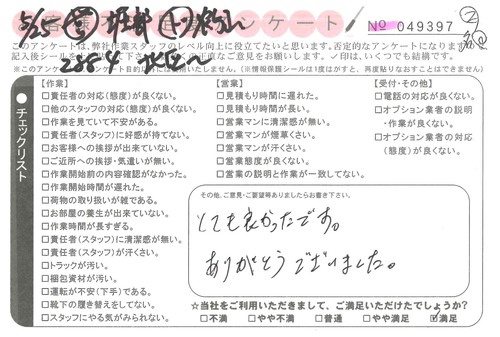 アンケート
№ 049397
このアンケートは、弊社作業スタッフのレベル向上に役立てたいと思います。否定的なアンケートになりますが
※この
【作業】
□責任者の対応(態度)が良くない。
□他のスタッフの対応(態度)が良くない。
□作業を見ていて不安がある。
□責任者(スタッフ)に好感が持てない。
□お客様への挨拶が出来ていない。
□ご近所への挨拶・気遣いが無い。
□作業開始前の内容確認がなかった。
□作業開始時間が遅れた。
□荷物の取り扱いが雑である。
□お部屋の養生が出来ていない。
□作業時間が長すぎる。
□責任者(スタッフ)に清潔感が無い。
□責任者(スタッフ)が汗くさい。
□トラックが汚い。
□梱包資材が汚い。
□運転が不安(下手)である。
□靴下の履き替えをしてない。
□スタッフにやる気がみられない。
【営業】
□見積もり時間に遅れた。
□見積もり時間が長い。
□営業マンに清潔感が無い。
□営業マンが煙草くさい。
□営業マンが汗くさい。
□営業態度が良くない。
□営業の説明と作業が一致してない。
【受付・その他】
□電話の対応が良くない。
□オプション業者の説明
・作業が良くない。
□オプション業者の対応
(態度)が良くない。
チェックリスト
その他、ご意見・ご要望等ありましたらお書き下さい。
とても良かったです。
ありがとうございました。
☆当社をご利用いただきまして、ご満足いただけたでしょうか?
□不満 □やや不満 □普通 □やや満足 ☑満足